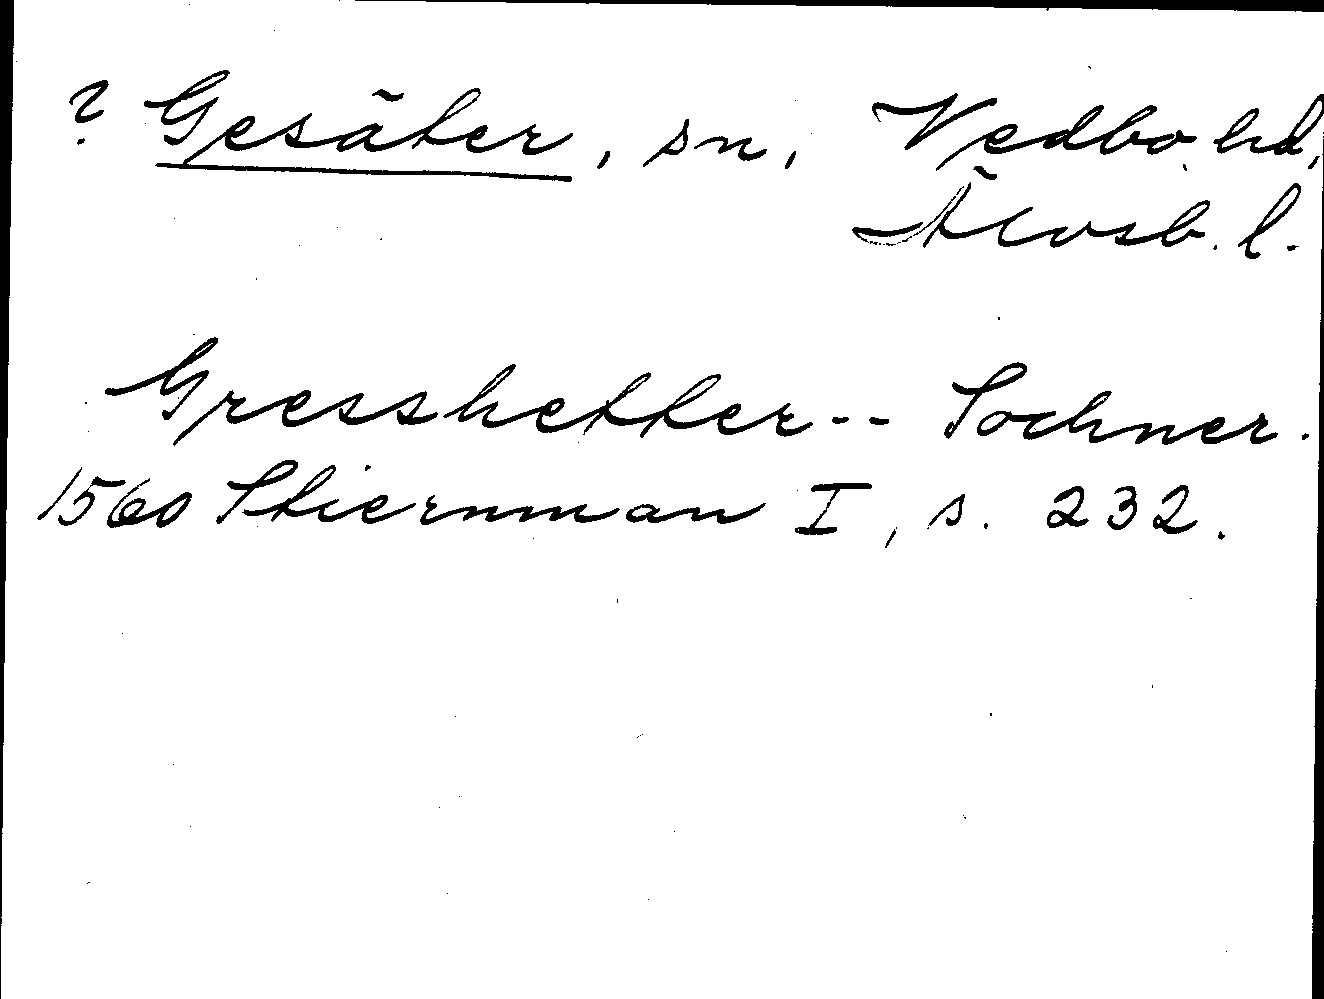 ? Gesäter, sn, Vedbo hd,
Älvsb. l.
Gresshetter-- Sochner.
1560 Stiernman I, s. 232.